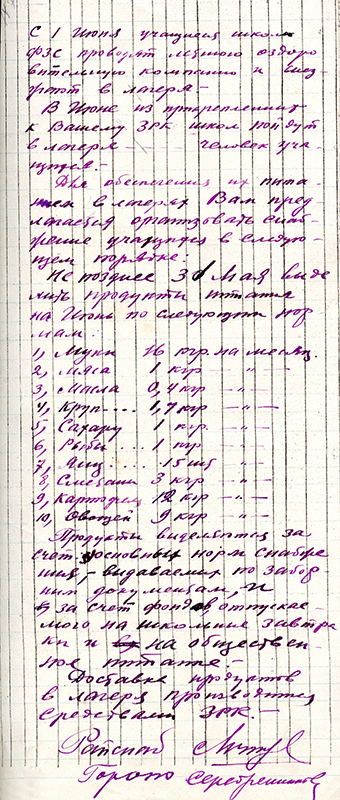 С 1 Июня учащиеся школ
ФЗС проводят летнюю оздоро
вительную компанию и выез-
жают в лагеря –
В Июне из прикрепленных
к Вашему ЗРК школ пойдут
в лагеря человек уча-
щихся. –
Для обеспечения их пита-
нием в лагерях Вам пред-
лагается организовать снаб-
жение учащихся в следую-
щем порядке:
Не позднее 31 Мая выде
лить продукты питания
на Июнь по следующим нор
мам:
1, Муки 16 кгр. на месяц.
2, Мяса 1 кгр – " –
3, Масла 0,4 кгр – " –
4, Круп.... 1,7 кгр – " –
5, Сахару 1 кгр. – " –
6, Рыбы 1 кгр – " –
7, Яиц .... 15 шт – " –
8, Сметаны 3 кгр – " –
9, Картофель 12 кгр – " –
10, Овощей 9 кгр – " –
Продукты выделяются за
счет основных норм снабже
ния, – выдаваемых по забор-
ным документам, и
за счет фондов отпускае-
мого на школьные завтра
ки и на обществен-
ное питание. –
Доставка продуктов
в лагеря производится
средствами ЗРК. –
Райснаб
Гороно Серебренников